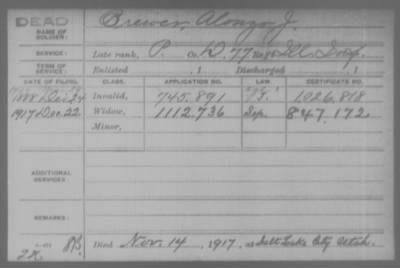 DEAD
NAME OF SOLDIER: Brewer, Alonzo J.
SERVICE: Late rank, P. Co. D, 77 Reg't Ill. Inf.
TERM OF SERVICE: Enlisted , 1 Discharged , 1
DATE OF FILING. CLASS. APPLICATION NO. LAW. CERTIFICATE NO.
Invalid, 745.891 1.026.818
1917 Dec. 22 Widow, 1112.736 Sep. 847.172
Minor,
ADDITIONAL SERVICES:
REMARKS:
Died Nov. 14, 1917, at Salt Lake City Utah.